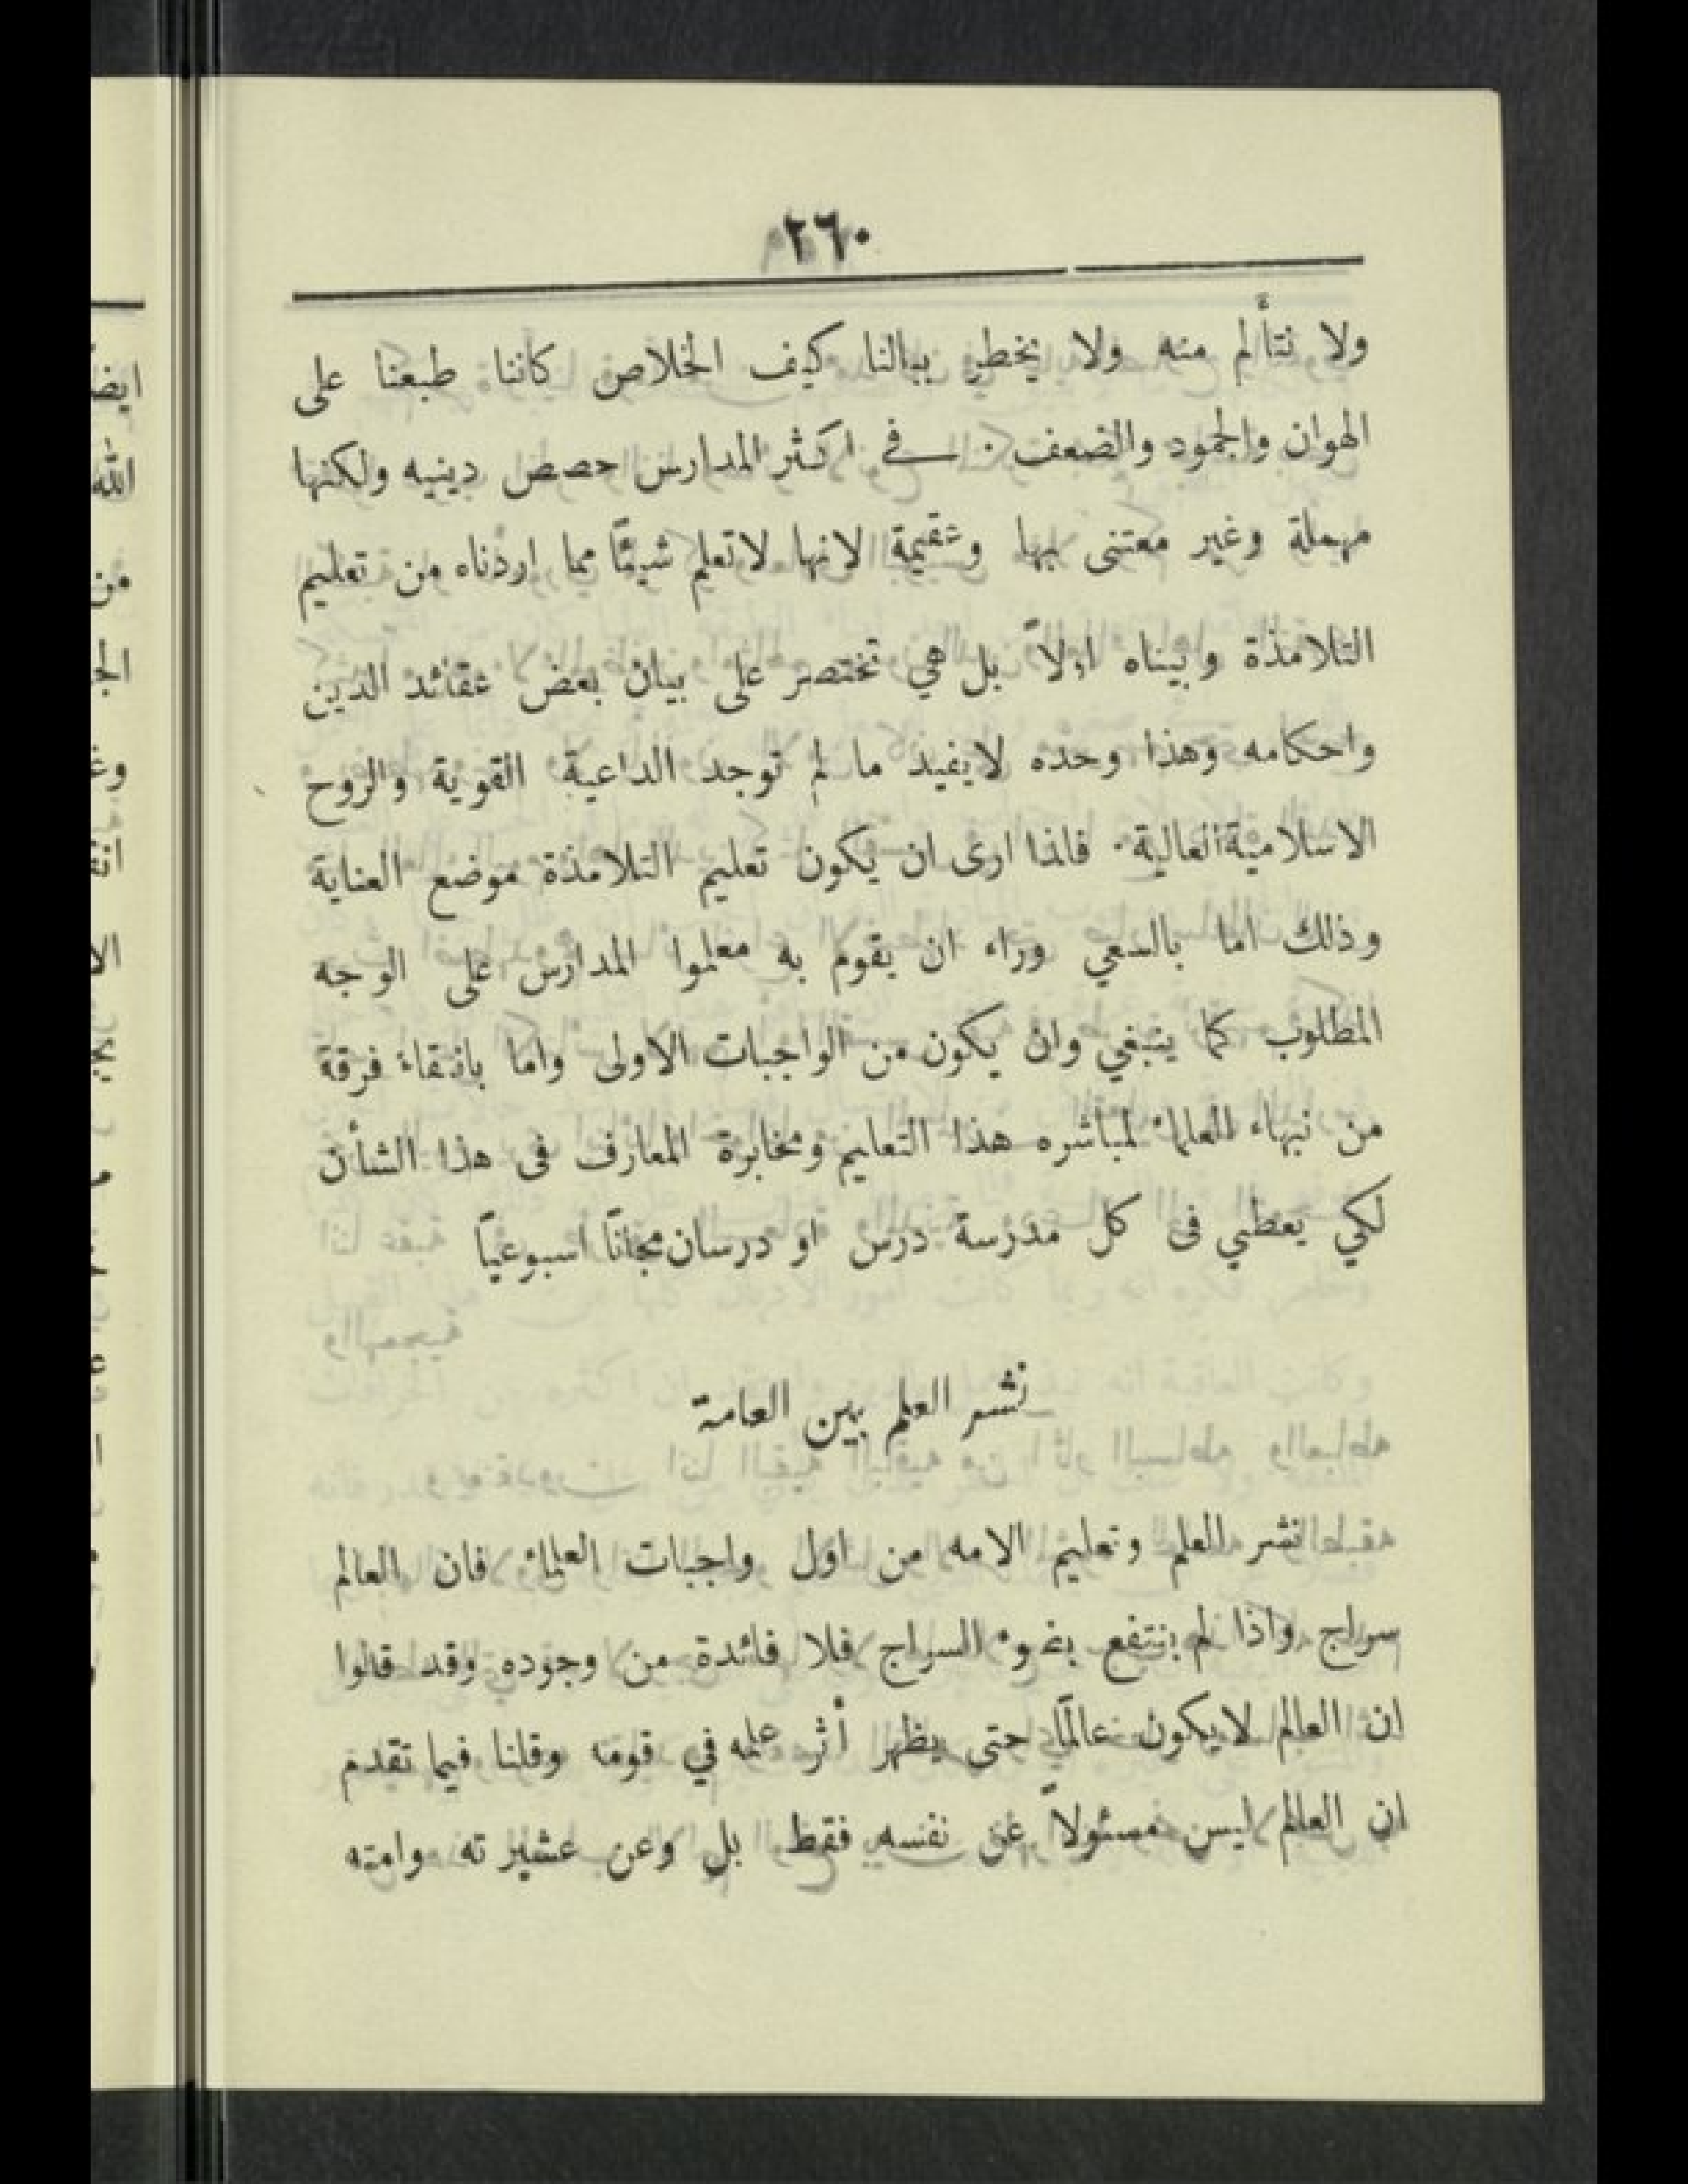 ٢٦٠
ولا نتألم منه ولا يخطر ببالنا كيف الخلاص كاننا طبعنا على
الهوان والجمود والضعف . في اكثر المدارس حصص دينيه ولكنها
مهملة وغير معتنى بها وعقيمة لانها لاتعلم شيئًا مما اردناه من تعليم
التلامذة وبيناه اولاً بل هي تختصر على بيان بعض عقائد الدين
واحكامه وهذا وحده لايفيد ما لم توجد الداعية القوية والروح
الاسلامية العالية . فلذا ارى ان يكون تعليم التلامذة موضع العناية
وذلك اما بالسعي وراء ان يقوم به معلموا المدارس على الوجه
المطلوب كما ينبغي وان يكون من الواجبات الاولى واما بانتقاء فرقة
من نبهاء العلماء لمباشره هذا التعليم ومخابرة المعارف فى هذا الشأن
لكي يعطي فى كل مدرسة درس او درسان مجانًا اسبوعيًا
نشر العلم بين العامة
نشر العلم وتعليم الامه من اول واجبات العلماء فان العالم
سراج واذا لم ينتفع بضوء السراج فلا فائدة من وجوده وقد قالوا
ان العالم لايكون عالمًا حتى يظهر أثر علمه في قومه وقلنا فيما تقدم
ان العالم ليس مسئولاً عن نفسه فقط بل وعن عشيرته وامته